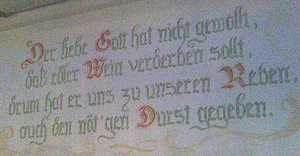 Der liebe Gott hat nicht gewollt,
daß edler Wein verderben sollt,
drum hat er uns zu unseren Reben,
auch den nöt'gen Durst gegeben.